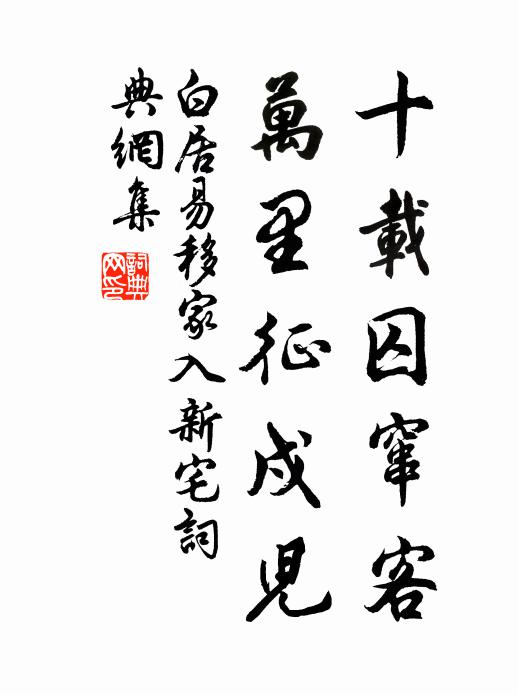 十載囚竄客
萬里征戍兒
白居易移家入新宅詞
典網集
詞典
网印